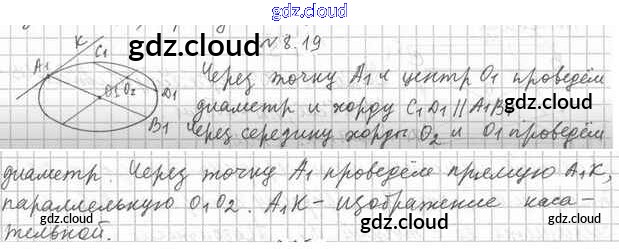 gdz.cloud
N 8.19
gdz.cloud
K
C1
A1
O1 O2
D1
B1
Через точку A1 и центр O1 проведём
диаметр и хорду C1D1 || A1B1
gdz.cloud
gdz.cloud
Через середину хорды O2 и O1 проведём
диаметр. Через точку A1 проведём прямую A1K,
параллельную O1O2. A1K - изображение каса-
gdz.cloud
gdz.cloud
тельной.